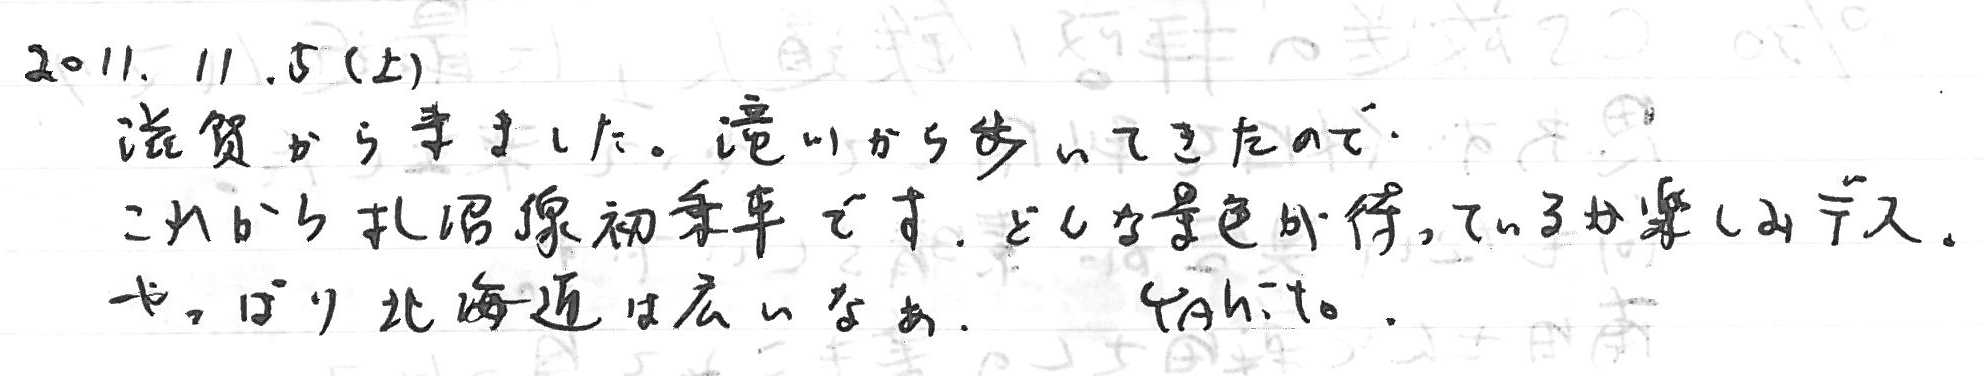 2011. 11. 5 (土)
滋賀から来ました。滝川から歩いてきたので.
これから札沼線初乗車です. どんな景色が待っているか楽しみデス.
やっぱり北海道は広いなあ. YAhito.